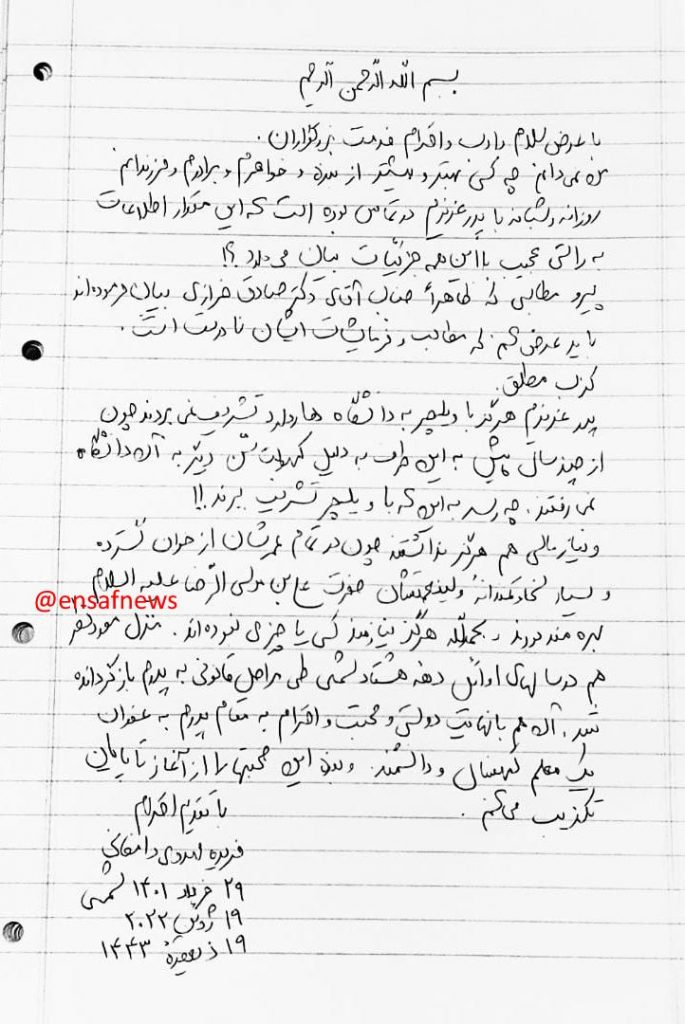 بسم اللّه الرّحمن الرّحیم
با عرض سلام و ادب و احترام خدمت بزرگواران.
بنده نمی‌دانم چه کسی بهتر و بیشتر از بنده و خواهرم و برادرم و فرزندانم
روزانه و شبانه با پدر عزیزم در تماس بوده است که این مقدار اطلاعات
به راستی عجیب با این همه جزئیات بیان می‌دارد؟!
پیرو مطالبی که ظاهراً جناب آقای دکتر صادق خرازی بیان فرموده‌اند
باید عرض کنم که مطالب و فرمایشات ایشان نادرست است.
کذب مطلق.
پدر عزیزم هرگز با ویلچر به دانشگاه هاروارد تشریف نمی بردند چون
از چند سالی پیش به این طرف به دلیل کهولت سّن دیگر به آن دانشگاه
نمی رفتند. چه رسد به این که با ویلچر تشریف ببرند!!
و نیاز مالی هم هرگز نداشتند چون در تمام عمرشان از خوان گسترده
و بسیار سخاوتمندانهٔ ولینعمتشان حضرت علی بن موسی الرّضا علیه السلام
@ensafnews
بهره مند بودند و بحمداللّه هرگز نیازمند کسی یا چیزی نبوده‌اند. منزل مورد نظر
هم در سالهای اوائل دهه هشتاد شمسی طی مراحل قانونی به پدرم بازگردانده
شد. آن هم با نهایت دوستی و محبت و احترام به مقام پدرم به عنوان
یک معلم کهنسال و دانشمند. و بنده این صحبتها را از آغاز تا پایان
تکذیب می‌کنم.
با تقدیم احترام
فریده مهدوی دامغانی
۲۹ خرداد ۱۴۰۱ شمسی
۱۹ ژوئن ۲۰۲۲
۱۹ ذیقعدهٔ ۱۴۴۳